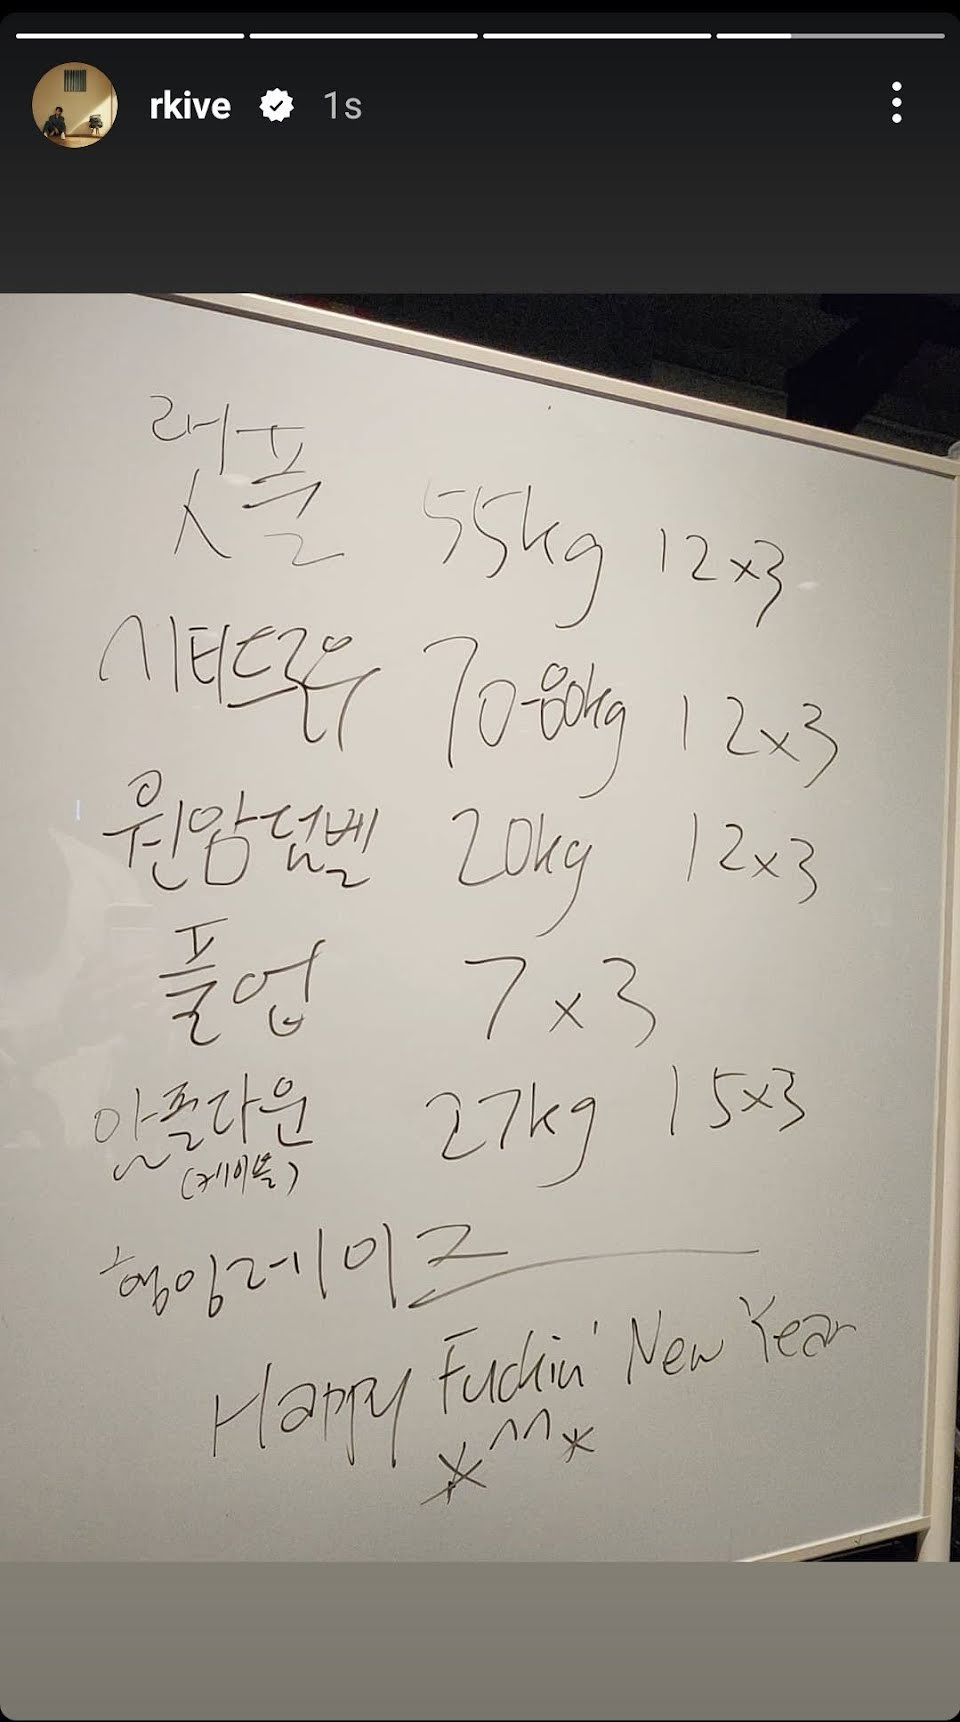 rkive 1s
랫풀 55kg 12x3
시티드로우 70-80kg 12x3
원암덤벨 20kg 12x3
풀업 7x3
암풀다운 27kg 15x3
(케이블)
행잉레이즈
Happy Fuckin' New Year
*^^*